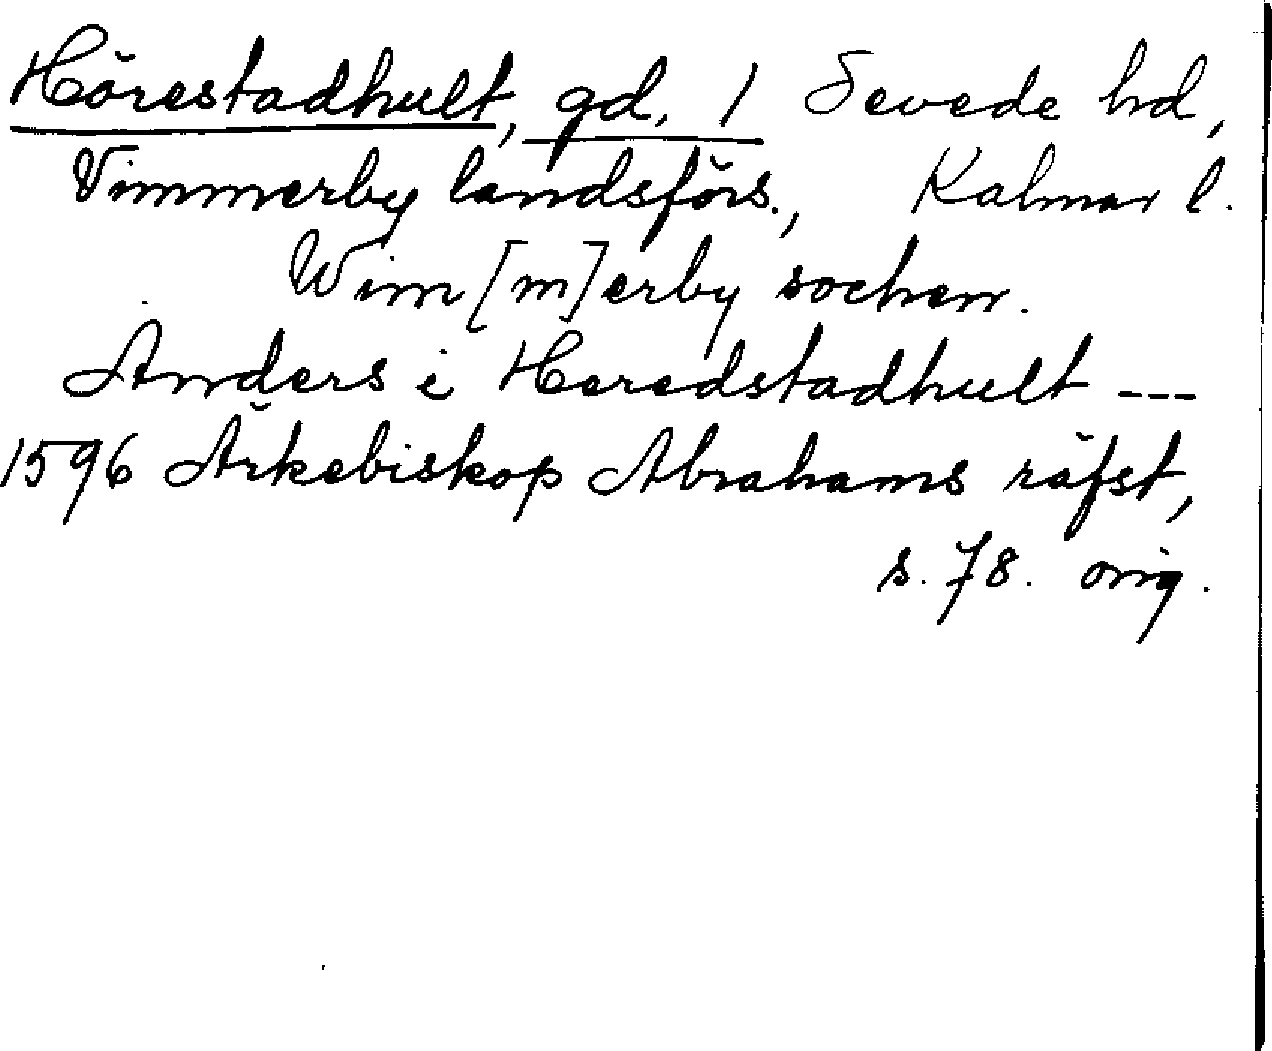 Hörestadhult, gd, 1 Sevede hd,
Vimmerby landsförs., Kalmar l.
Wim[m]erby sochen.
Anders i Heredstadhult ---
1596 Ärkebiskop Abrahams räfst,
s. 78. orig.